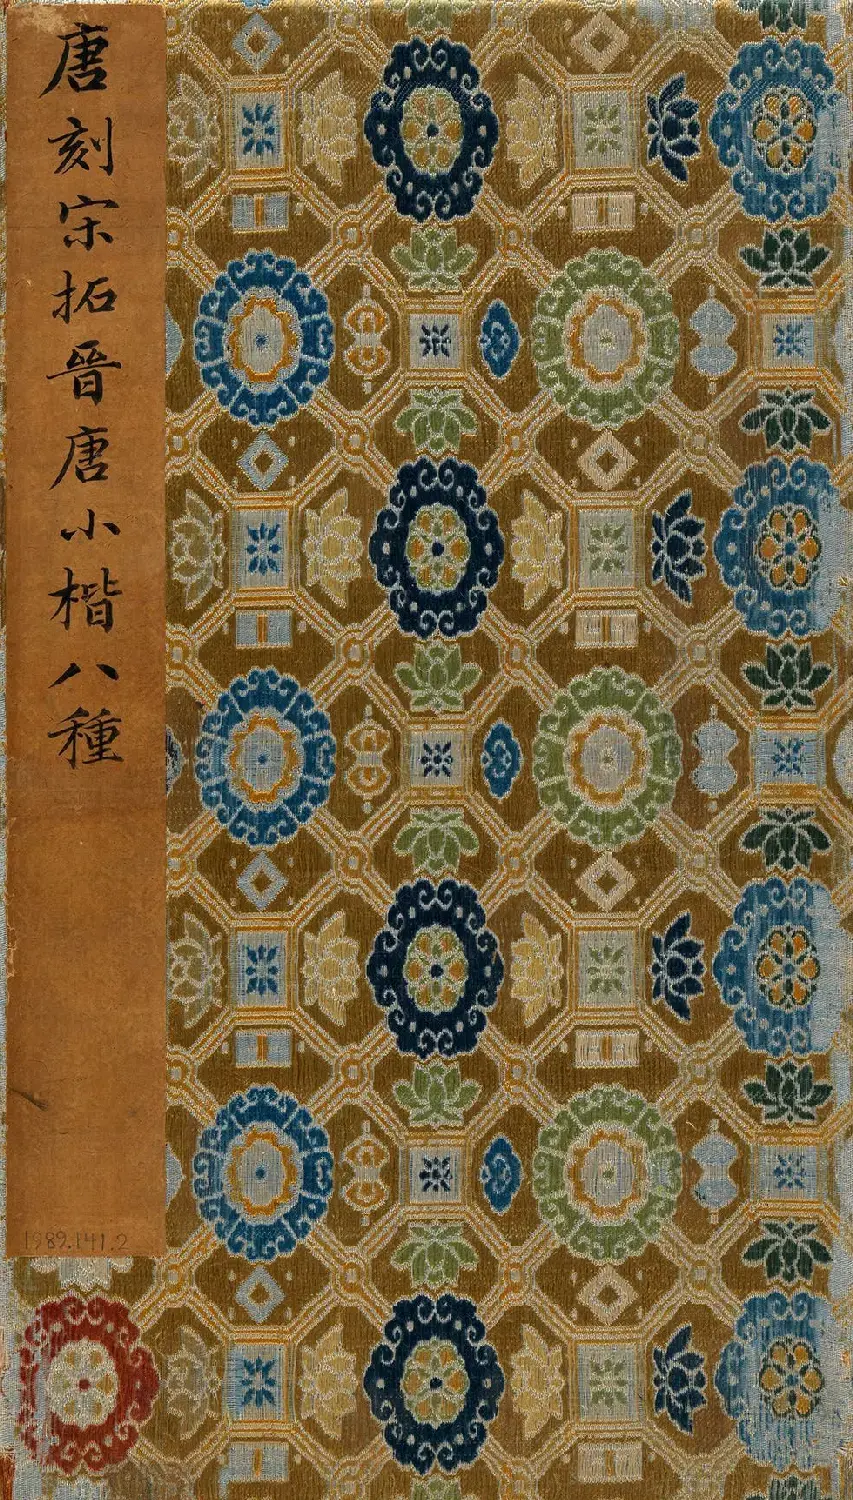 唐刻宋拓晉唐小楷八種
1989.141.2